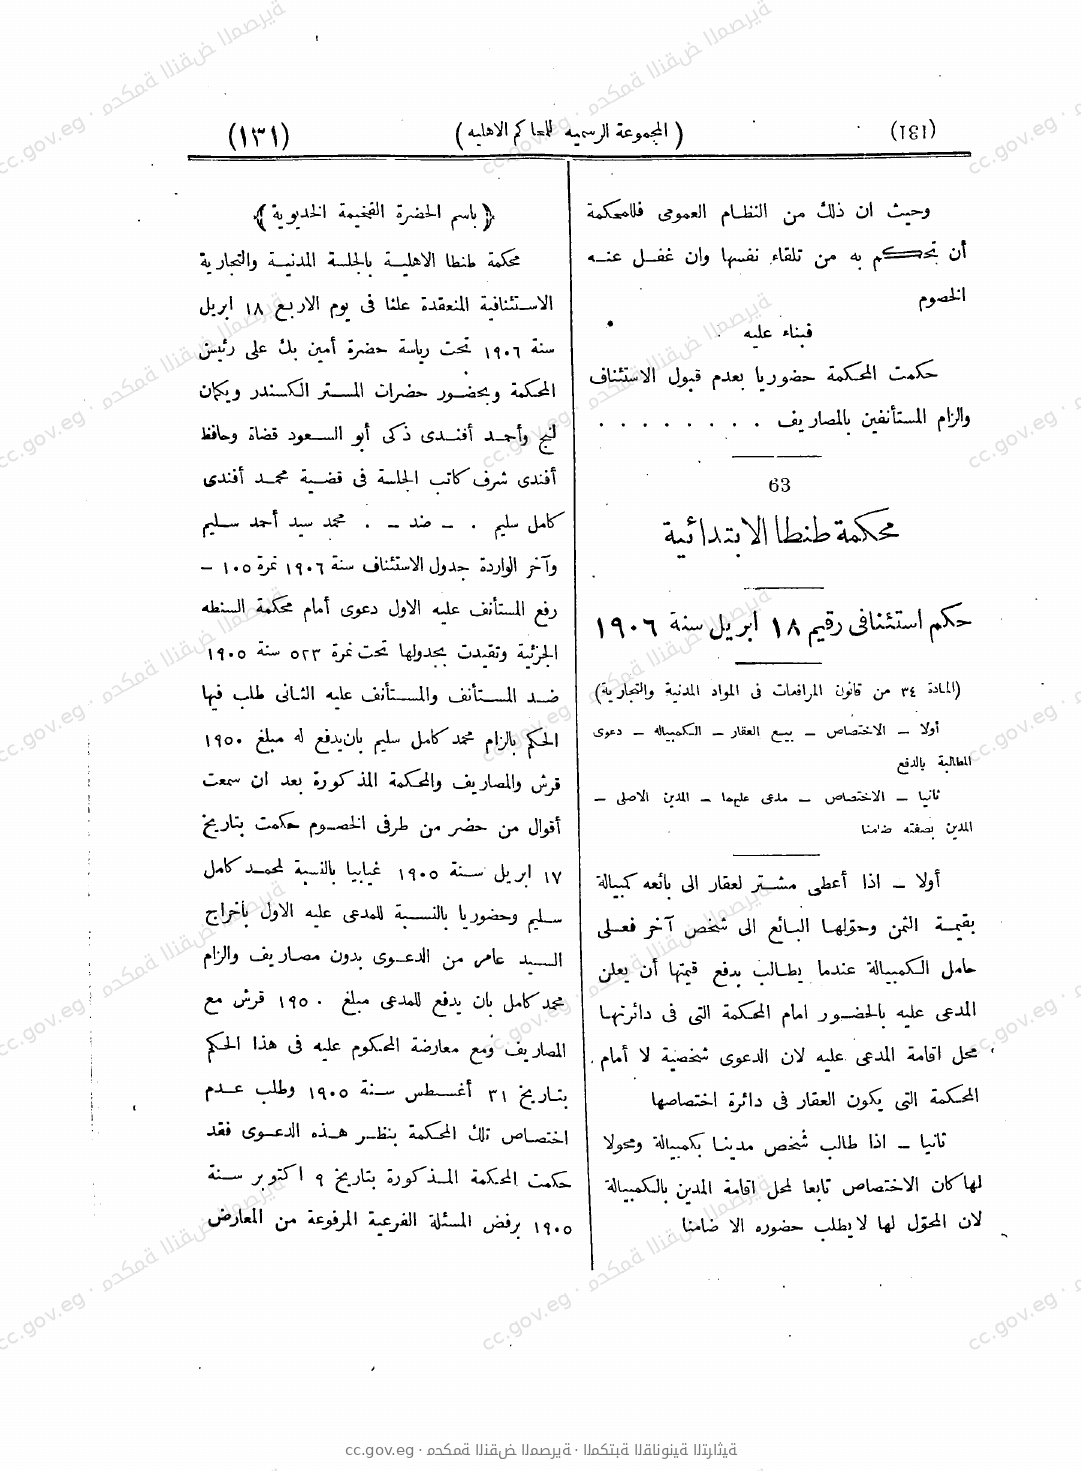 (131)
(المجموعة الرسميه للمحاكم الاهليه)
(١٣١)
وحيث ان ذلك من النظام العمومى فللمحكمة
أن تحكم به من تلقاء نفسها وان غفل عنه
الخصوم
فبناء عليه
حكمت المحكمة حضوريا بعدم قبول الاستئناف
والزام المستأنفين بالمصاريف . . . . . . . .
63
محكمة طنطا الابتدائية
حكم استئنافى رقيم ١٨ ابريل سنة ١٩٠٦
(المادة ٣٤ من قانون المرافعات فى المواد المدنية والتجارية)
أولا – الاختصاص – بيع العقار – الكمبياله – دعوى
المطالبة بالدفع
ثانيا – الاختصاص – مدعى عليهما – المدين الاصلى –
المدين بصفته ضامنا
أولا – اذا أعطى مشتر لعقار الى بائعه كمبيالة
بقيمة الثمن وحوّلها البائع الى شخص آخر فعلى
حامل الكمبيالة عندما يطالب بدفع قيمتها أن يعلن
المدعى عليه بالحضور امام المحكمة التى فى دائرتها
محل اقامة المدعى عليه لان الدعوى شخصية لا أمام
المحكمة التى يكون العقار فى دائرة اختصاصها
ثانيا – اذا طالب شخص مدينا بكمبيالة ومحولا
لها كان الاختصاص تابعا لمحل اقامة المدين بالكمبيالة
لان المحوّل لها لا يطلب حضوره الا ضامنا
﴿باسم الحضرة الفخيمة الخديوية﴾
محكمة طنطا الاهلية بالجلسة المدنية والتجارية
الاستئنافية المنعقدة علنا فى يوم الاربع ١٨ ابريل
سنة ١٩٠٦ تحت رياسة حضرة أمين بك على رئيس
المحكمة وبحضور حضرات المستر الكسندر ويكمان
لنج وأحمد أفندى ذكى أبو السعود قضاة وحافظ
أفندى شرف كاتب الجلسة فى قضية محمد أفندى
كامل سليم . – ضد – . محمد سيد أحمد سليم
وآخر الواردة جدول الاستئناف سنة ١٩٠٦ نمرة ١٠٥ –
رفع المستأنف عليه الاول دعوى أمام محكمة السنطه
الجزئية وتقيدت بجدولها تحت نمرة ٥٢٣ سنة ١٩٠٥
ضد المستأنف والمستأنف عليه الثانى طلب فيها
الحكم بالزام محمد كامل سليم بان يدفع له مبلغ ١٩٥٠
قرش والمصاريف والمحكمة المذكورة بعد ان سمعت
أقوال من حضر من طرفى الخصوم حكمت بتاريخ
١٧ ابريل سنة ١٩٠٥ غيابيا بالنسبة لمحمد كامل
سليم وحضوريا بالنسبة للمدعى عليه الاول باخراج
السيد عامر من الدعوى بدون مصاريف والزام
محمد كامل بان يدفع للمدعى مبلغ ١٩٥٠ قرش مع
المصاريف ومع معارضة المحكوم عليه فى هذا الحكم
بتاريخ ٣١ أغسطس سنة ١٩٠٥ وطلب عدم
اختصاص تلك المحكمة بنظر هذه الدعوى فقد
حكمت المحكمة المذكورة بتاريخ ٩ اكتوبر سنة
١٩٠٥ برفض المسئلة الفرعية المرفوعة من المعارض
cc.gov.eg · محكمة النقض المصرية · المكتبة القانونية التراثية